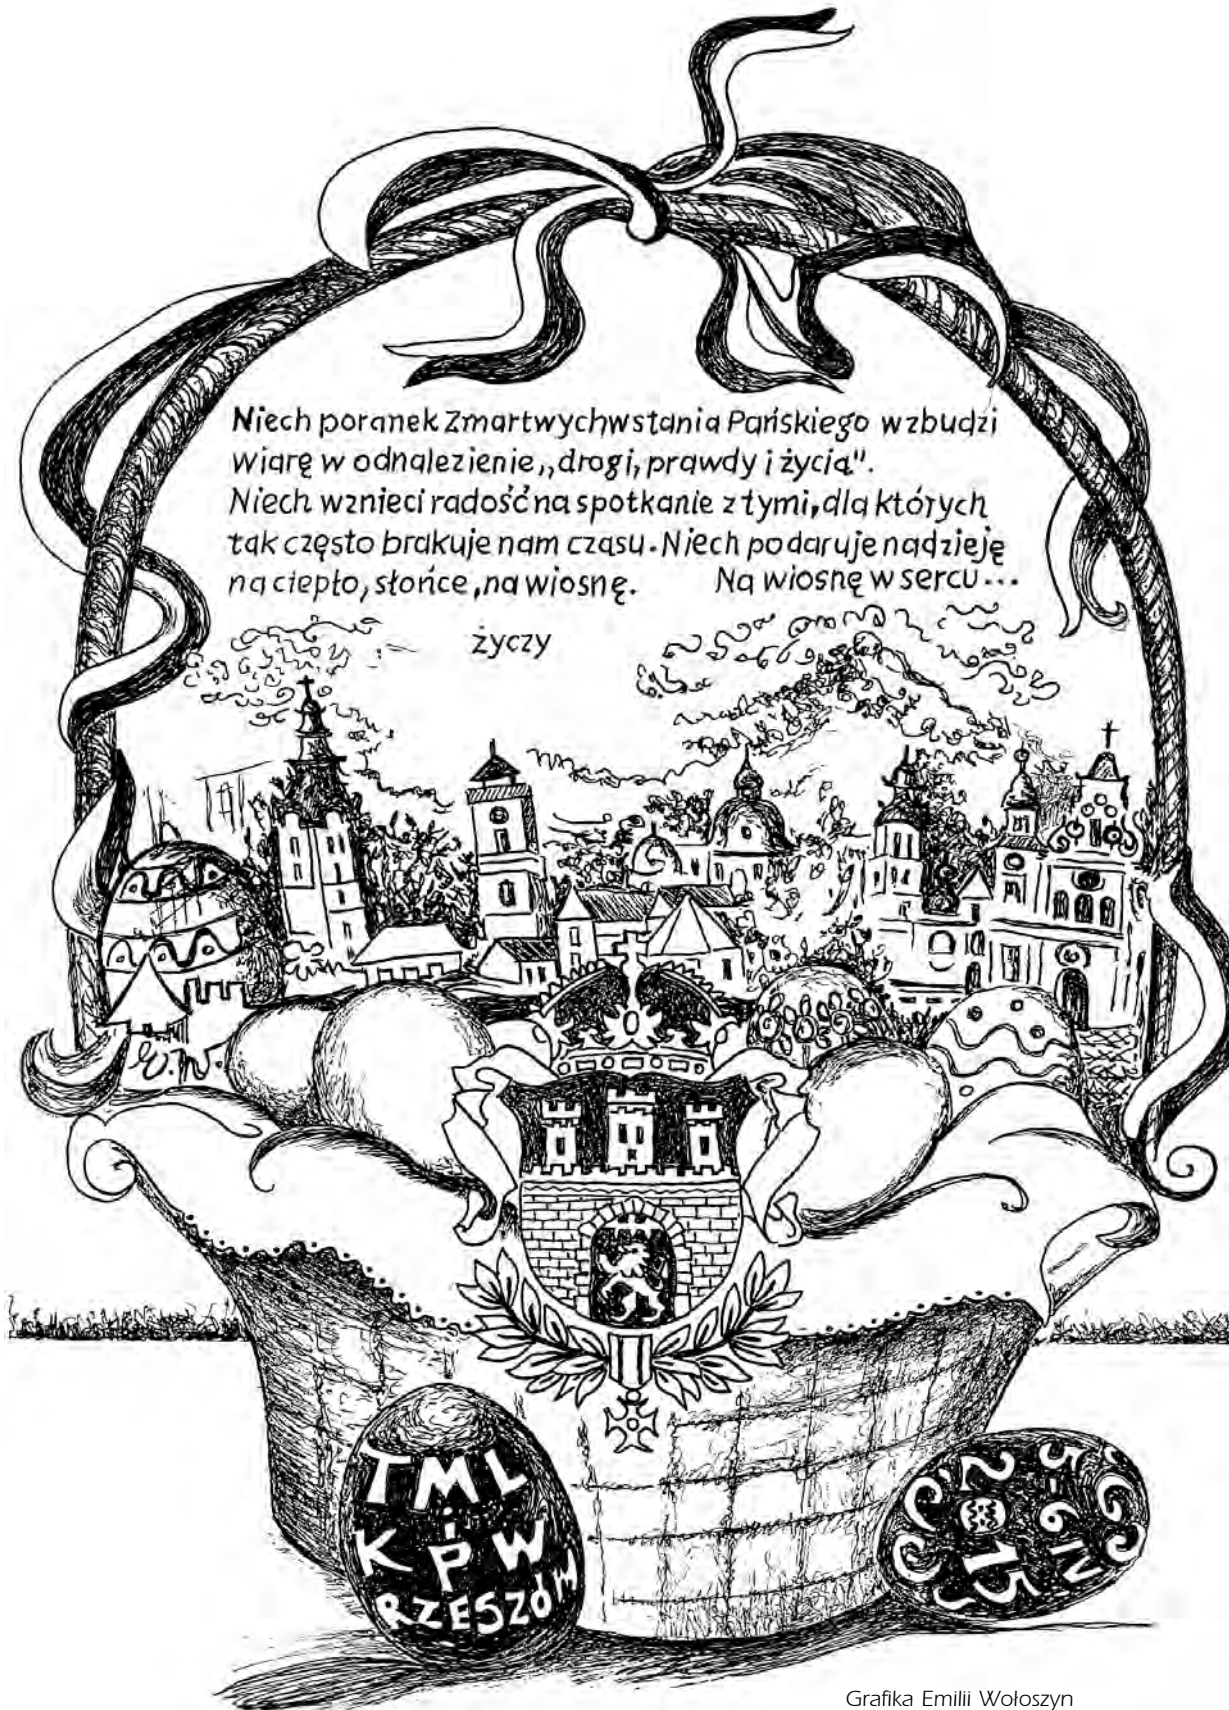 Niech poranek Zmartwychwstania Pańskiego wzbudzi
wiarę w odnalezienie „drogi, prawdy i życia".
Niech wznieci radość na spotkanie z tymi, dla których
tak często brakuje nam czasu. Niech podaruje nadzieję
na ciepło, słońce, na wiosnę. Na wiosnę w sercu...
życzy
TML
i
KPW
RZESZÓW
2015
Grafika Emilii Wołoszyn